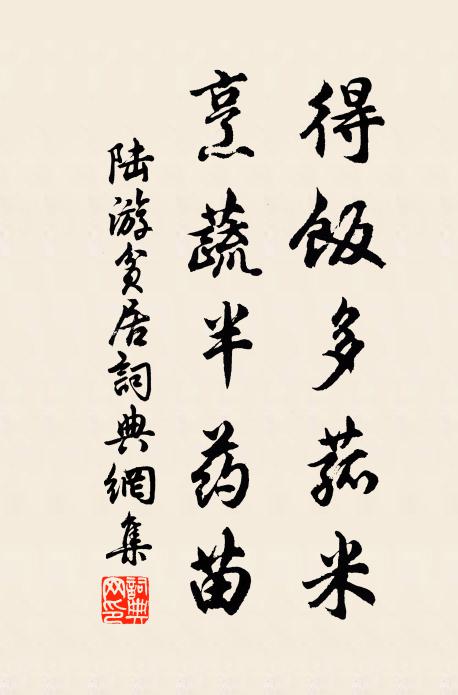 得飯多菰米
烹蔬半药苗
陆游贫居詞典網集
詞典网印